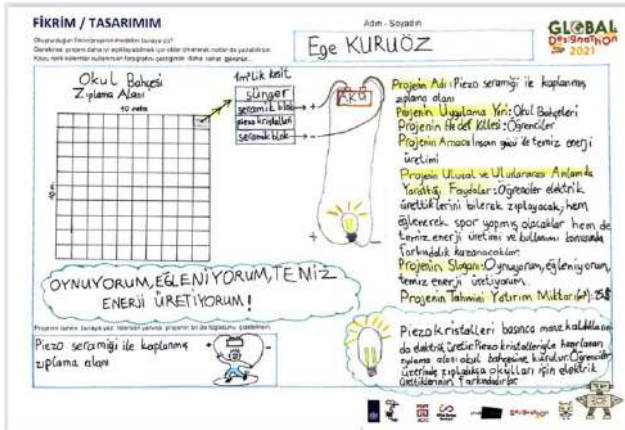 FİKRİM / TASARIMIM
Adın - Soyadın
Ege KURUÖZ
GLOBAL
Designathon
2021
Oluşturduğun fikrin/projenin modelini buraya çiz!
Okul Bahçesi
Zıplama Alanı
10 metre
10 m.
1m²lik kesit
sünger
seramik blok
piezo kristalleri
seramik blok
AKÜ
+
-
Projenin Adı: Piezo seramiği ile kaplanmış
zıplama alanı
Projenin Uygulama Yeri: Okul Bahçeleri
Projenin Hedef Kitlesi: Öğrenciler
Projenin Amacı: İnsan gücü ile temiz enerji
üretimi
Projenin Ulusal ve Uluslararası Anlamda
Yarattığı Faydalar: Öğrenciler elektrik
ürettiklerini bilerek zıplayacak, hem
eğlenerek spor yapmış olacaklar hem de
temiz enerji üretimi ve kullanımı konusunda
farkındalık kazanacaklar.
Projenin Sloganı: Oynuyorum, eğleniyorum,
temiz enerji üretiyorum.
Projenin Tahmini Yatırım Miktarı
OYNUYORUM, EĞLENİYORUM, TEMİZ
ENERJİ ÜRETİYORUM!
Piezo seramiği ile kaplanmış
zıplama alanı
+
-
Piezo kristalleri basınca maruz kaldıkların
da elektrik üretir. Piezo kristalleriyle hazırlanan
zıplama alanı okul bahçesine kurulur. Öğrenciler
üzerinde zıpladıkça okulları için elektrik
ürettiklerinin farkındadırlar.